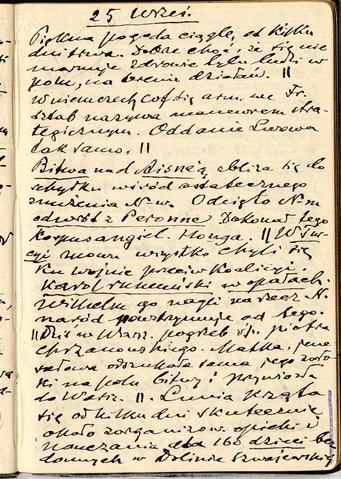 25 Wrześ.
Piękna pogoda ciągle, od kilku
dni trwa. Dobre choć, że się nie
marnuje zdrowie tylu ludzi w
polu, na terenie działań. ||
W niemczech cof. się arm. we Fr.
Sztab nazywa manewrem stra-
tegicznym. Oddanie Lwowa
tak samo. ||
Bitwa nad Aisne'ą zbliża się do
schyłku wśród ostatecznego
znużenia N-wa. Odcięto N-m
odwrót z Peronne. Dokonał tego
korpus angiel. || W Tur-
cyi mowa wszystko chyli się
ku wojnie przeciw koalicyi.
Karol rumuński w opałach.
Wilhelm go nagli na rzecz N.
naród powstrzymuje od tego.
|| Dziś w Warsz. pogrzeb ś.p. Piotra
Chrzanowskiego. Matka, jene-
rałowa odszukała sama jego zwło-
ki na polu bitwy i przywiozła
do Warsz. || Lunia krząta
się od kilku dni skutecznie
około zorganizow. opieki i
nauczania dla 160 dzieci bez-
domnych w Dolinie Szwajcarskiej